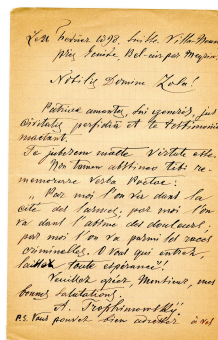 Le Février 1898, Suisse, Villa
près Genève, Bel-air par Meyrin.
Nobilis Domine Zola!
Patriae amantes, sui generis,
civitatis perfidia et te testimonio
mactant.
Te juberem macte virtute esto
non tamen abstineo tibi re-
memorare verba Poëtae:
„Par moi l'on va dans la
cité des larmes, par moi l'on
va dans l'abîme des douleurs,
par moi l'on va parmi les races
criminelles. O vous qui entrez,
laissez toute espérance"!
Veuillez agréer, Monsieur, mes
bonnes salutations
A.
P.S. Vous pouvez bien